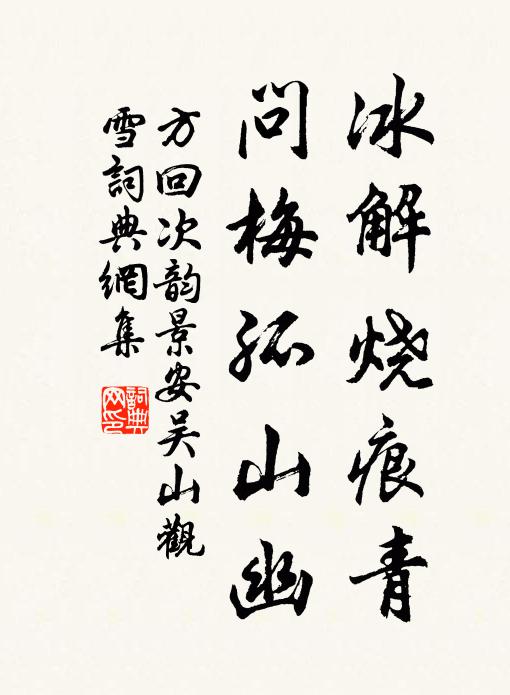 冰解烧痕青
问梅孤山幽
方回次韵景安吴山觀
雪詞典網集
詞典网印